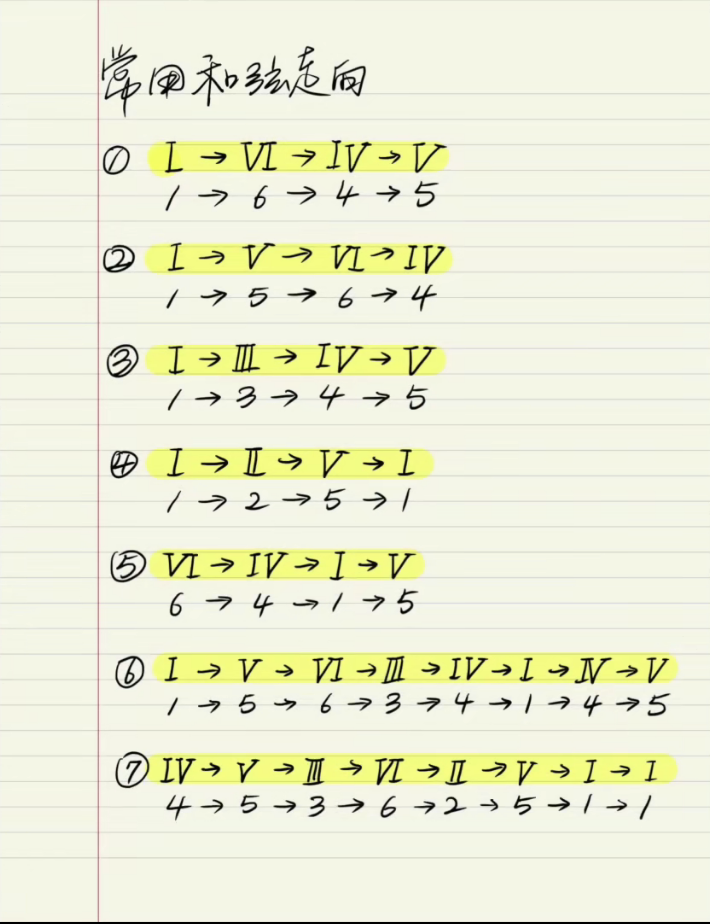 常用和弦走向
① I → VI → IV → V
1 → 6 → 4 → 5
② I → V → VI → IV
1 → 5 → 6 → 4
③ I → III → IV → V
1 → 3 → 4 → 5
④ I → II → V → I
1 → 2 → 5 → 1
⑤ VI → IV → I → V
6 → 4 → 1 → 5
⑥ I → V → VI → III → IV → I → IV → V
1 → 5 → 6 → 3 → 4 → 1 → 4 → 5
⑦ IV → V → III → VI → II → V → I → I
4 → 5 → 3 → 6 → 2 → 5 → 1 → 1